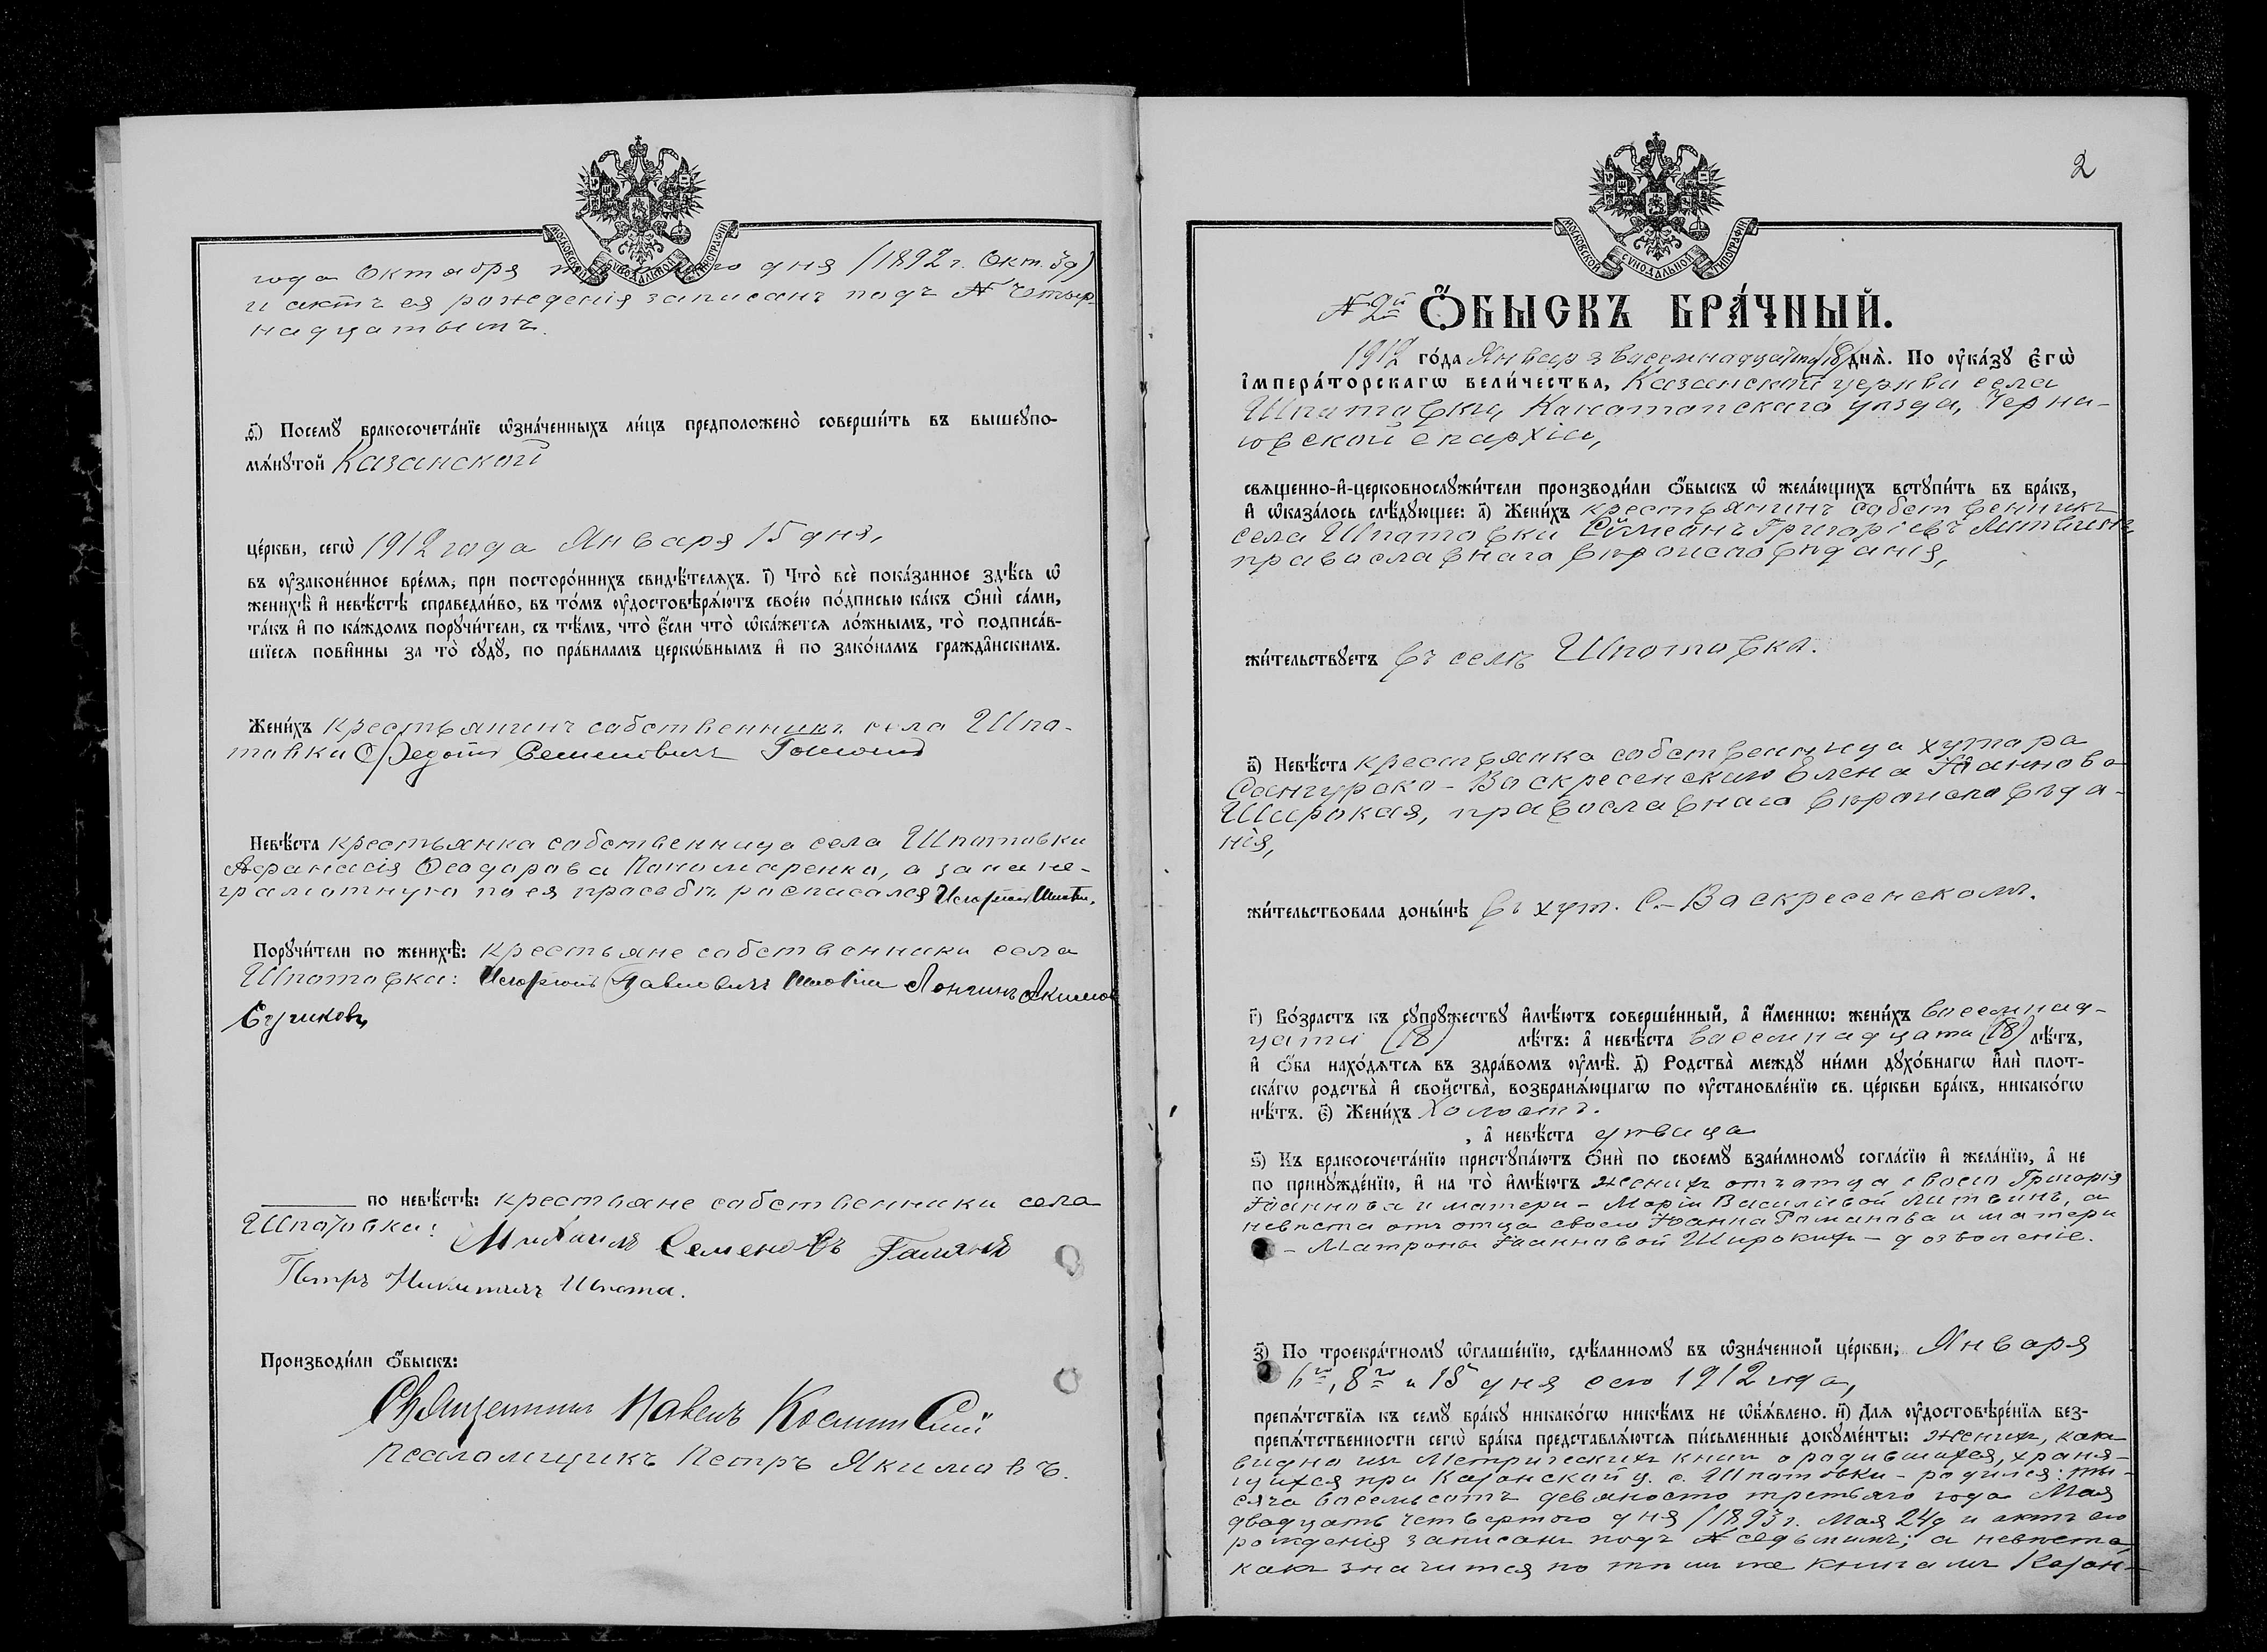 МОСКОВСКОЙ СѴНОДАЛЬНОЙ ТИПОГРАФІИ
года Октября дня (1892 г. Окт. 3 д)
и актъ ея рожденія записанъ подъ № Четыр-
надцатымъ.
ѳ҃) Посемꙋ бракосочета́нїе ѡ҆зна́ченныхъ ли́цъ предположено̀ соверши́ть въ вышеꙋпо-
мѧ́нꙋтой Казанской
це́ркви, сегѡ̀ 1912 года Января 15 дня,
въ ᲂу҆законе́нное вре́мѧ, при посторо́ннихъ свидѣ́телѧхъ. і҃) Что̀ всѐ пока́занное здѣ́сь ѡ҆
женихѣ̀ и҆ невѣ́стѣ справедли́во, въ то́мъ ᲂу҆достовѣрѧ́ютъ свое́ю по́дписью ка́къ ѻ҆нѝ са́ми,
та́къ и҆ по ка́ждомъ порꙋчи́тели, съ тѣ́мъ, что̀ є҆́сли что̀ ѡ҆ка́жетсѧ ло́жнымъ, то̀ подписа́в-
шїесѧ пови́нны за то̀ сꙋдꙋ̀, по пра́виламъ церкѡ́внымъ и҆ по зако́намъ гражда̑нскимъ.
Жени́хъ крестьянинъ собственникъ села Шпо-
товки Ѳедотъ Семеновичъ
Невѣ́ста крестьянка собственница села Шпотовки
Афанасія Ѳеодорова Пономаренко, а за на не-
грамотную по ея просьбѣ росписался
Порꙋчи́тели по женихѣ̀: крестьяне собственники села
Шпотовки: Павловичъ Лонгинъ Акимов
по невѣ́стѣ: крестьяне собственники села
Шпотовки: Михаилъ Семеновъ
Петръ Никитичъ Шпота.
Производи́ли ѻ҆́быскъ:
Священникъ Павелъ
Псаломщикъ Петръ Якимовъ.
2
МОСКОВСКОЙ СѴНОДАЛЬНОЙ ТИПОГРАФІИ
№ 2й Ѻ҆́БЫСКЪ БРА́ЧНЫЙ.
1912 го́да Января восемнадцатаго (18) днѧ̀. По ᲂу҆ка́зꙋ є҆гѡ̀
і҆мпера́торскагѡ вели́чества, Казанской церкви села
Шпотовки, Конотопскаго уѣзда, Черни-
говской епархіи,
свѧщенно-и҆-церковнослꙋжи́тели производи́ли ѻ҆́быскъ ѡ҆ жела́ющихъ встꙋпи́ть въ бра́къ,
и҆ ѡ҆каза́лось слѣ́дꙋющее: а҃) Жени́хъ крестьянинъ собственникъ
села Шпотовки Сѵмеонъ Григоріевъ Литвинъ
православнаго вѣроисповѣданія,
жи́тельствꙋетъ въ селѣ Шпотовка.
в҃) Невѣ́ста крестьянка собственница хутора
Сангурако-Воскресенскаго Елена Іоаннова
Широкая, православнаго вѣроисповѣда-
нія,
жи́тельствовала доны́нѣ въ хут. С.-Воскресенскомъ.
г҃) Во́зрастъ къ сꙋпрꙋ́жествꙋ и҆мѣ́ютъ соверше́нный, а҆ и҆́меннѡ: жени́хъ восемнад-
цати (18) лѣ́тъ: а҆ невѣ́ста восемнадцати (18) лѣ́тъ,
и҆ ѻ҆́ба нахо́дѧтсѧ въ здра́вомъ ᲂу҆мѣ̀. д҃) Родства̀ междꙋ̀ ни́ми дꙋхо́внагѡ и҆лѝ плот-
ска́гѡ родства̀ и҆ свойства̀, возбранѧ́ющагѡ по ᲂу҆становле́нїю св. це́ркви бра́къ, никако́гѡ
нѣ́тъ. є҃) Жени́хъ Холостъ.
, а҆ невѣ́ста дѣвица
ѕ҃) Къ бракосочета́нїю пристꙋпа́ютъ ѻ҆нѝ по своемꙋ̀ взаи́мномꙋ согла́сїю и҆ жела́нїю, а҆ не
по принꙋжде́нїю, и҆ на то̀ и҆мѣ́ютъ женихъ отъ отца своего Григорія
Іоаннова и матери - Маріи Василіевой Литвинъ, а
невѣста отъ отца своего Іоанна Романова и матери
- Матроны Іоанновой Широкихъ - дозволеніе.
з҃) По троекра́тномꙋ ѡ҆глаше́нїю, сдѣ́ланномꙋ въ ѡ҆зна́ченной це́ркви, Января
6го, 8го и 15 дня сего 1912 года,
препѧ́тствїѧ къ семꙋ̀ бра́кꙋ никако́гѡ никѣ́мъ не ѡ҆б̾ѧ́влено. и҃) Для ᲂу҆достовѣре́нїѧ без-
препѧ́тственности сегѡ̀ бра́ка представлѧ́ютсѧ пи́сьменные докꙋме́нты: женихъ, какъ
видно изъ Метрическихъ книгъ о родившихся, храня-
щихся при Казанской ц. с. Шпотовки - родился: ты-
сяча восемьсотъ девяносто третьяго года Мая
двадцать четвертого дня (1893 г. Мая 24 д и актъ его
рожденія записанъ подъ № седьмымъ; а невѣста,
какъ значится по тѣмъ же книгамъ Казан-